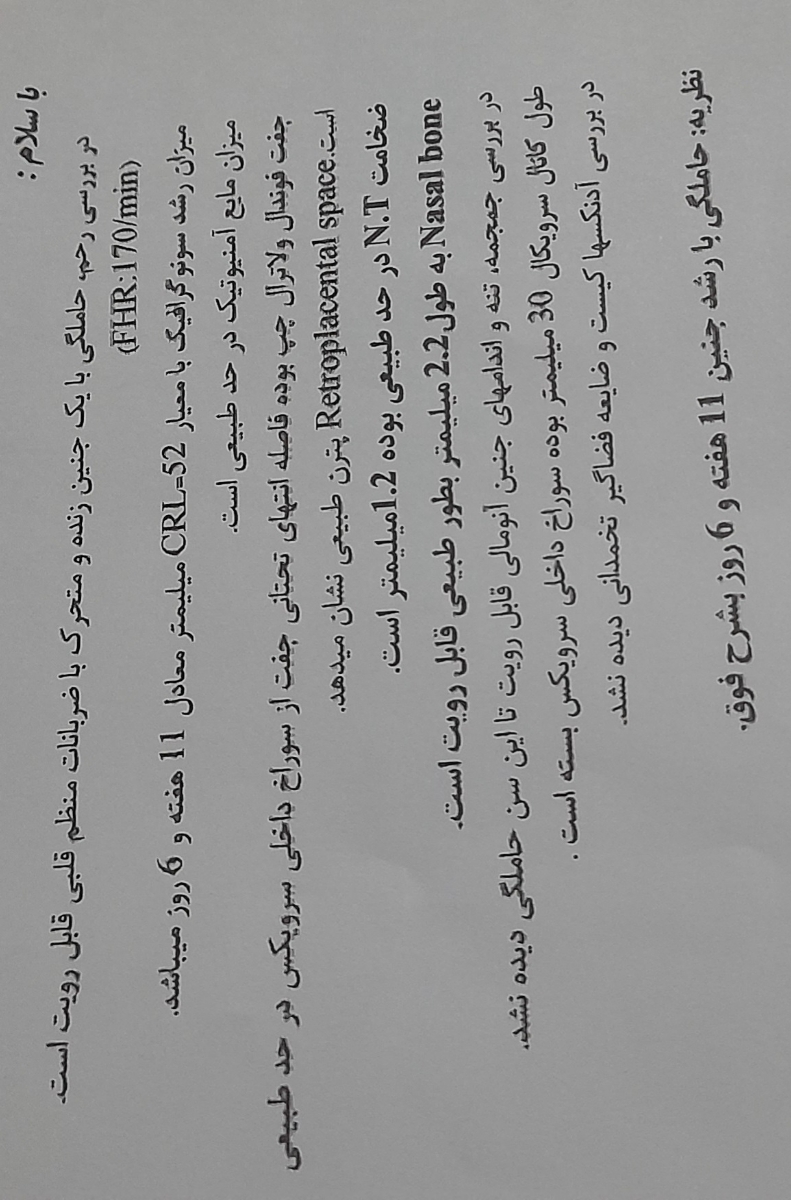 با سلام :
در بررسی رحم، حاملگی با یک جنین زنده و متحرک با ضربانات منظم قلبی قابل رویت است.
(FHR:170/min)
میزان رشد سونوگرافیک با معیار CRL=52 میلیمتر معادل 11 هفته و 6 روز میباشد.
میزان مایع آمنیوتیک در حد طبیعی است.
جفت فوندال ولاترال چپ بوده فاصله انتهای تحتانی جفت از سوراخ داخلی سرویکس در حد طبیعی
است.Retroplacental space پترن طبیعی نشان میدهد.
ضخامت N.T در حد طبیعی بوده 1.2میلیمتر است.
Nasal bone به طول 2.2 میلیمتر بطور طبیعی قابل رویت است.
در بررسی جمجمه، تنه و اندامهای جنین آنومالی قابل رویت تا این سن حاملگی دیده نشد.
طول کانال سرویکال 30 میلیمتر بوده سوراخ داخلی سرویکس بسته است .
در بررسی آدنکسها کیست و ضایعه فضاگیر تخمدانی دیده نشد.
نظریه: حاملگی با رشد جنین 11 هفته و 6 روز بشرح فوق.